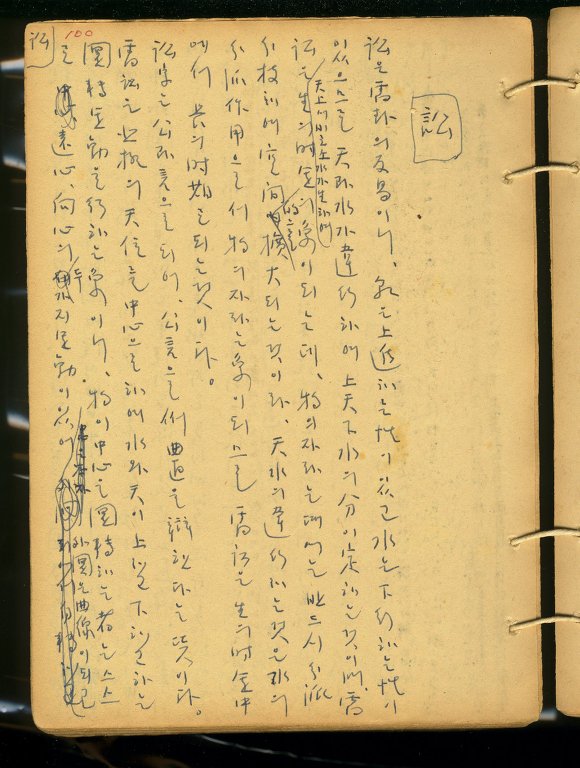 訟 100
訟
訟은 需卦의 反易이니, 乾은 上進하는 性이 있고 水는 下行하는 性이
있으므로 天과 水가 違行하여 上天下水의 分이 定하는 것이며, 需
天上에서 비로소 水가 生하여
訟은 生의 時運의 象이 되는데, 物의 자라는 때에는 반드시 分派
分枝하여 空間的으로 擴大되는 것이라, 天水의 違行하는 것은 水의
分派作用으로써 物의 자라는 象이 되므로 需訟은 生의 時運中
에서 長의 時期로 되는 것이다.
訟字는 公과 言으로 되어, 公言으로써 曲直을 辯한다는 뜻이다.
需訟은 北極의 天位를 中心으로 하여 水와 天이 上했다 下했다 하는
圓轉運動을 行하는 象이니, 物이 中心을 圓轉하는 者는 스스
로 遠心, 向心의 두가지 運動이 있어 外圓은 曲線이 되고